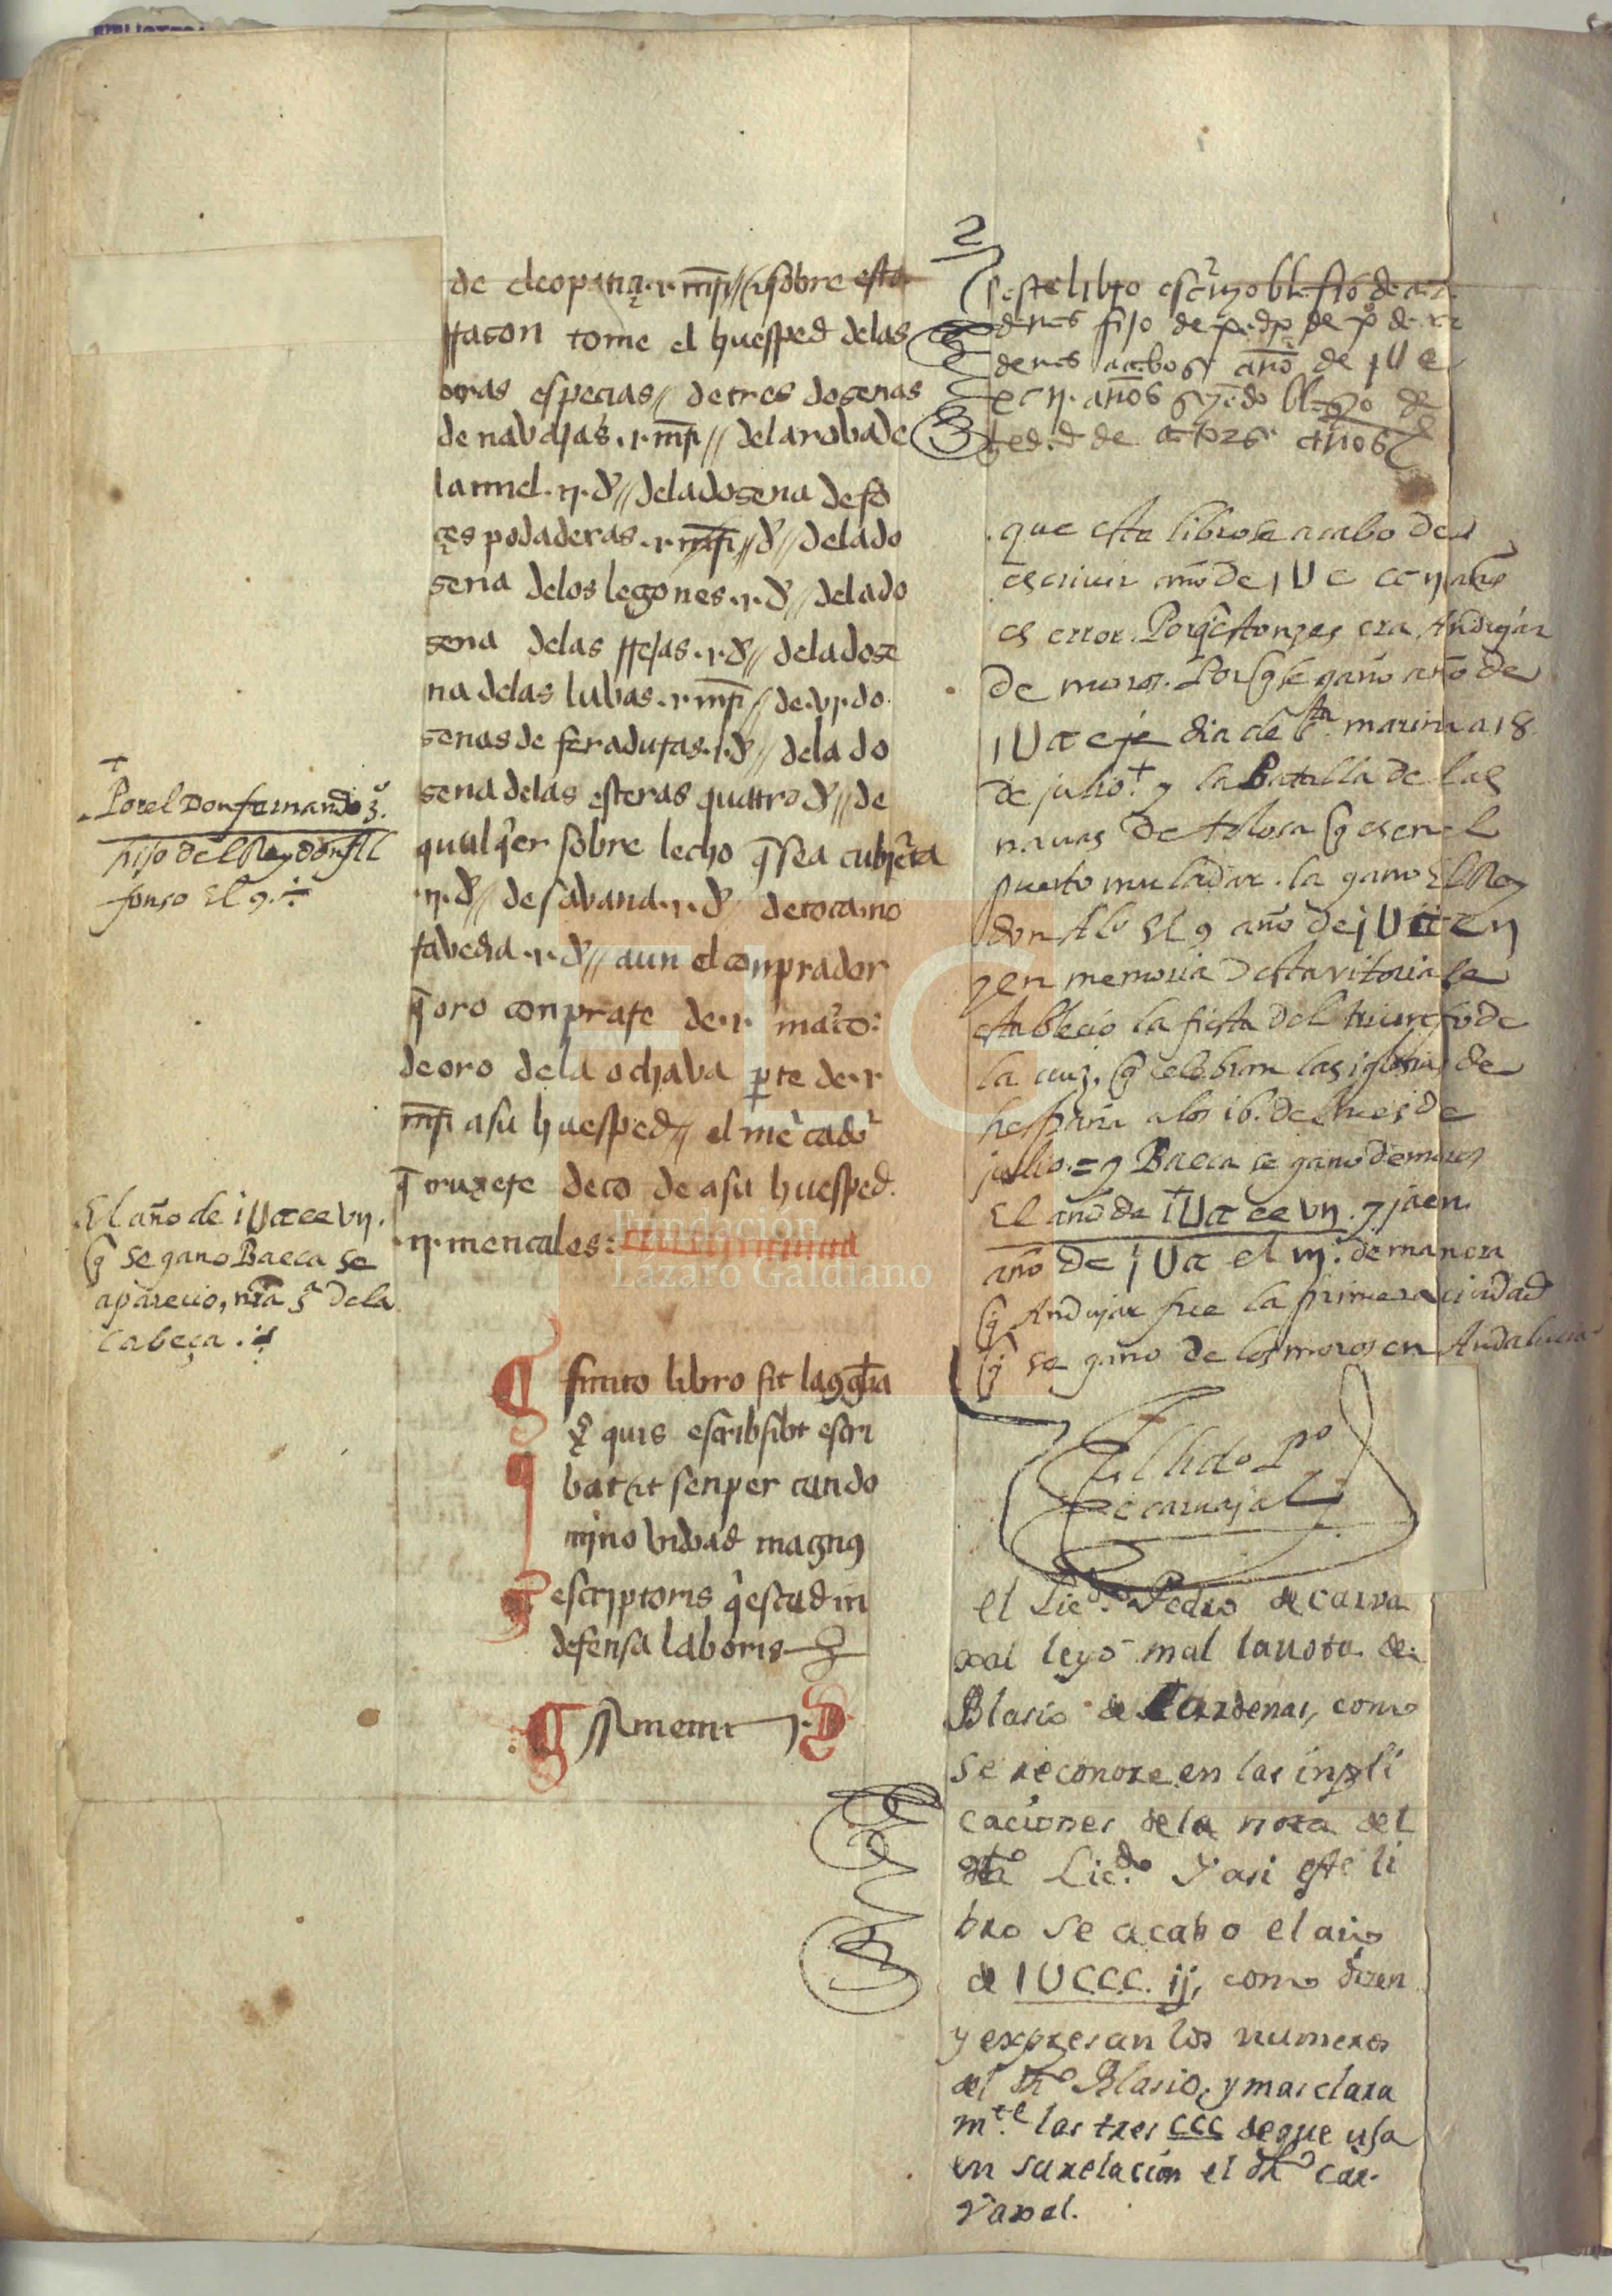 de cleopatra .i. mr̄i // Et sobre esta
rrason tome el huesped delas
otras especias // de tres dosenas
de navajas .i. mr̄i // del arova de
la miel .ij. dr̄ // dela dosena de fo
çes podaderas .i. dr̄ // dela do
sena delos legones .i. dr̄ // dela do
sena delas rrejas .i. dr̄ // dela dose
na delas luvas .i. mr̄i // de .vj. do
senas de feraduras .i. dr̄ // dela do
sena delas esteras quatro dr̄ // de
qualq̄er sobre lecho q̄ sea cubierta
.ij. dr̄ // de savana .i. dr̄ de toca no
.i. dr̄ // aun el conprador
q̄ oro conprase de .i. marco
de oro dela ochava parte de .i.
mr̄i a su huesped // el mercador
q̄ truxese deco de a su huesped
.ij. mencales:
finito libro sit laus gl̄ia
xp̄ quis escribsibt escri
bat et senper cun do
mino vivad magnus
escriptoris q̄ estud in
defensa laboris
Amen
+
Por el Don fernando 3.º
hijo del Rey don All
fonso El 9.
El año de iUccxxvij.
q̄ se gano Baeca se
aparecio, nr̄a sª dela
cabeça.
2
este libro escrivyo blasio de car
denas fijo de pedro de pº de car
denas acabose año de iU c
cc ij. años syēdo blasyo de
hedad de años
que este libro se acabo de
escrivir año de iU c cc ij años
es error. Porq̄ estonzes era Andujar
de moros. Porq̄ se gano año de
dia de sta marina a 18
de julio. + y la Batalla de las
navas de tolosa q̄ es en el
puerto muladar. la gano El Rey
don Alº El 9 año de iU ccxij
y en memoria desta vitoria se
establecio la fiesta del triunfo de
la cruz, q̄ celebran las iglesias de
hespaña a los 16. del mes de
julio. = y Baeca se gano de moros
El año de iU cc xxvij. y jaen.
año de iU cc xl vj. de manera
q̄ Andujar fue la primera ciudad
q̄ se gano de los moros en Andalucia
El licdo Pº
de caruajal
el Licdo. Pedro de carva
xal leyo mal la nota de
Blasio de Cardenas, como
se reconoze en las inpli
caciones de la nota del
dhº Licdo. Y asi este li
bro se acabo el año
de IUCCC. ij, como dizen
y expresan los numeros
del dhº Blasio, y mas clara
mte. las tres CCC de que usa
en su relacion el dhº Car-
vaxal.
Fundación
Lázaro Galdiano